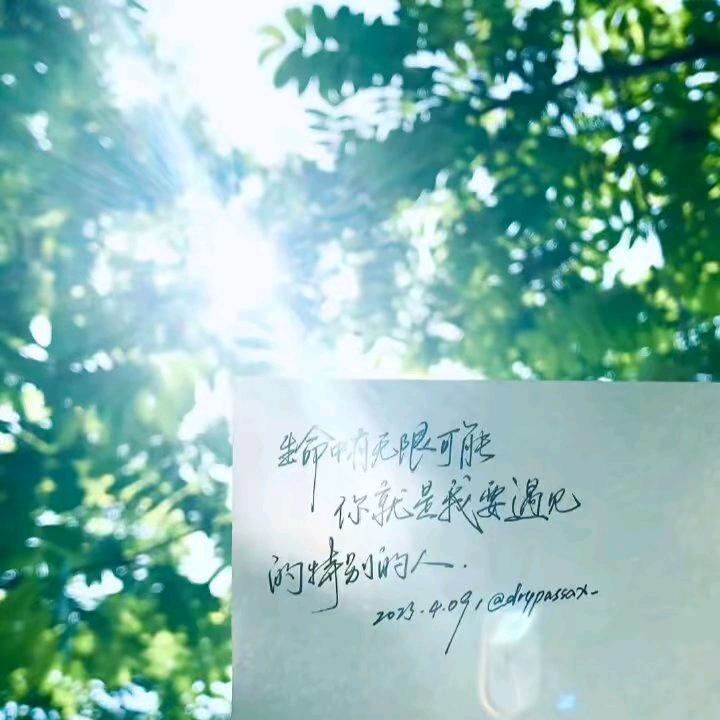 生命中有无限可能
你就是我要遇见
的特别的人.
2023.4.09,@drypassax-